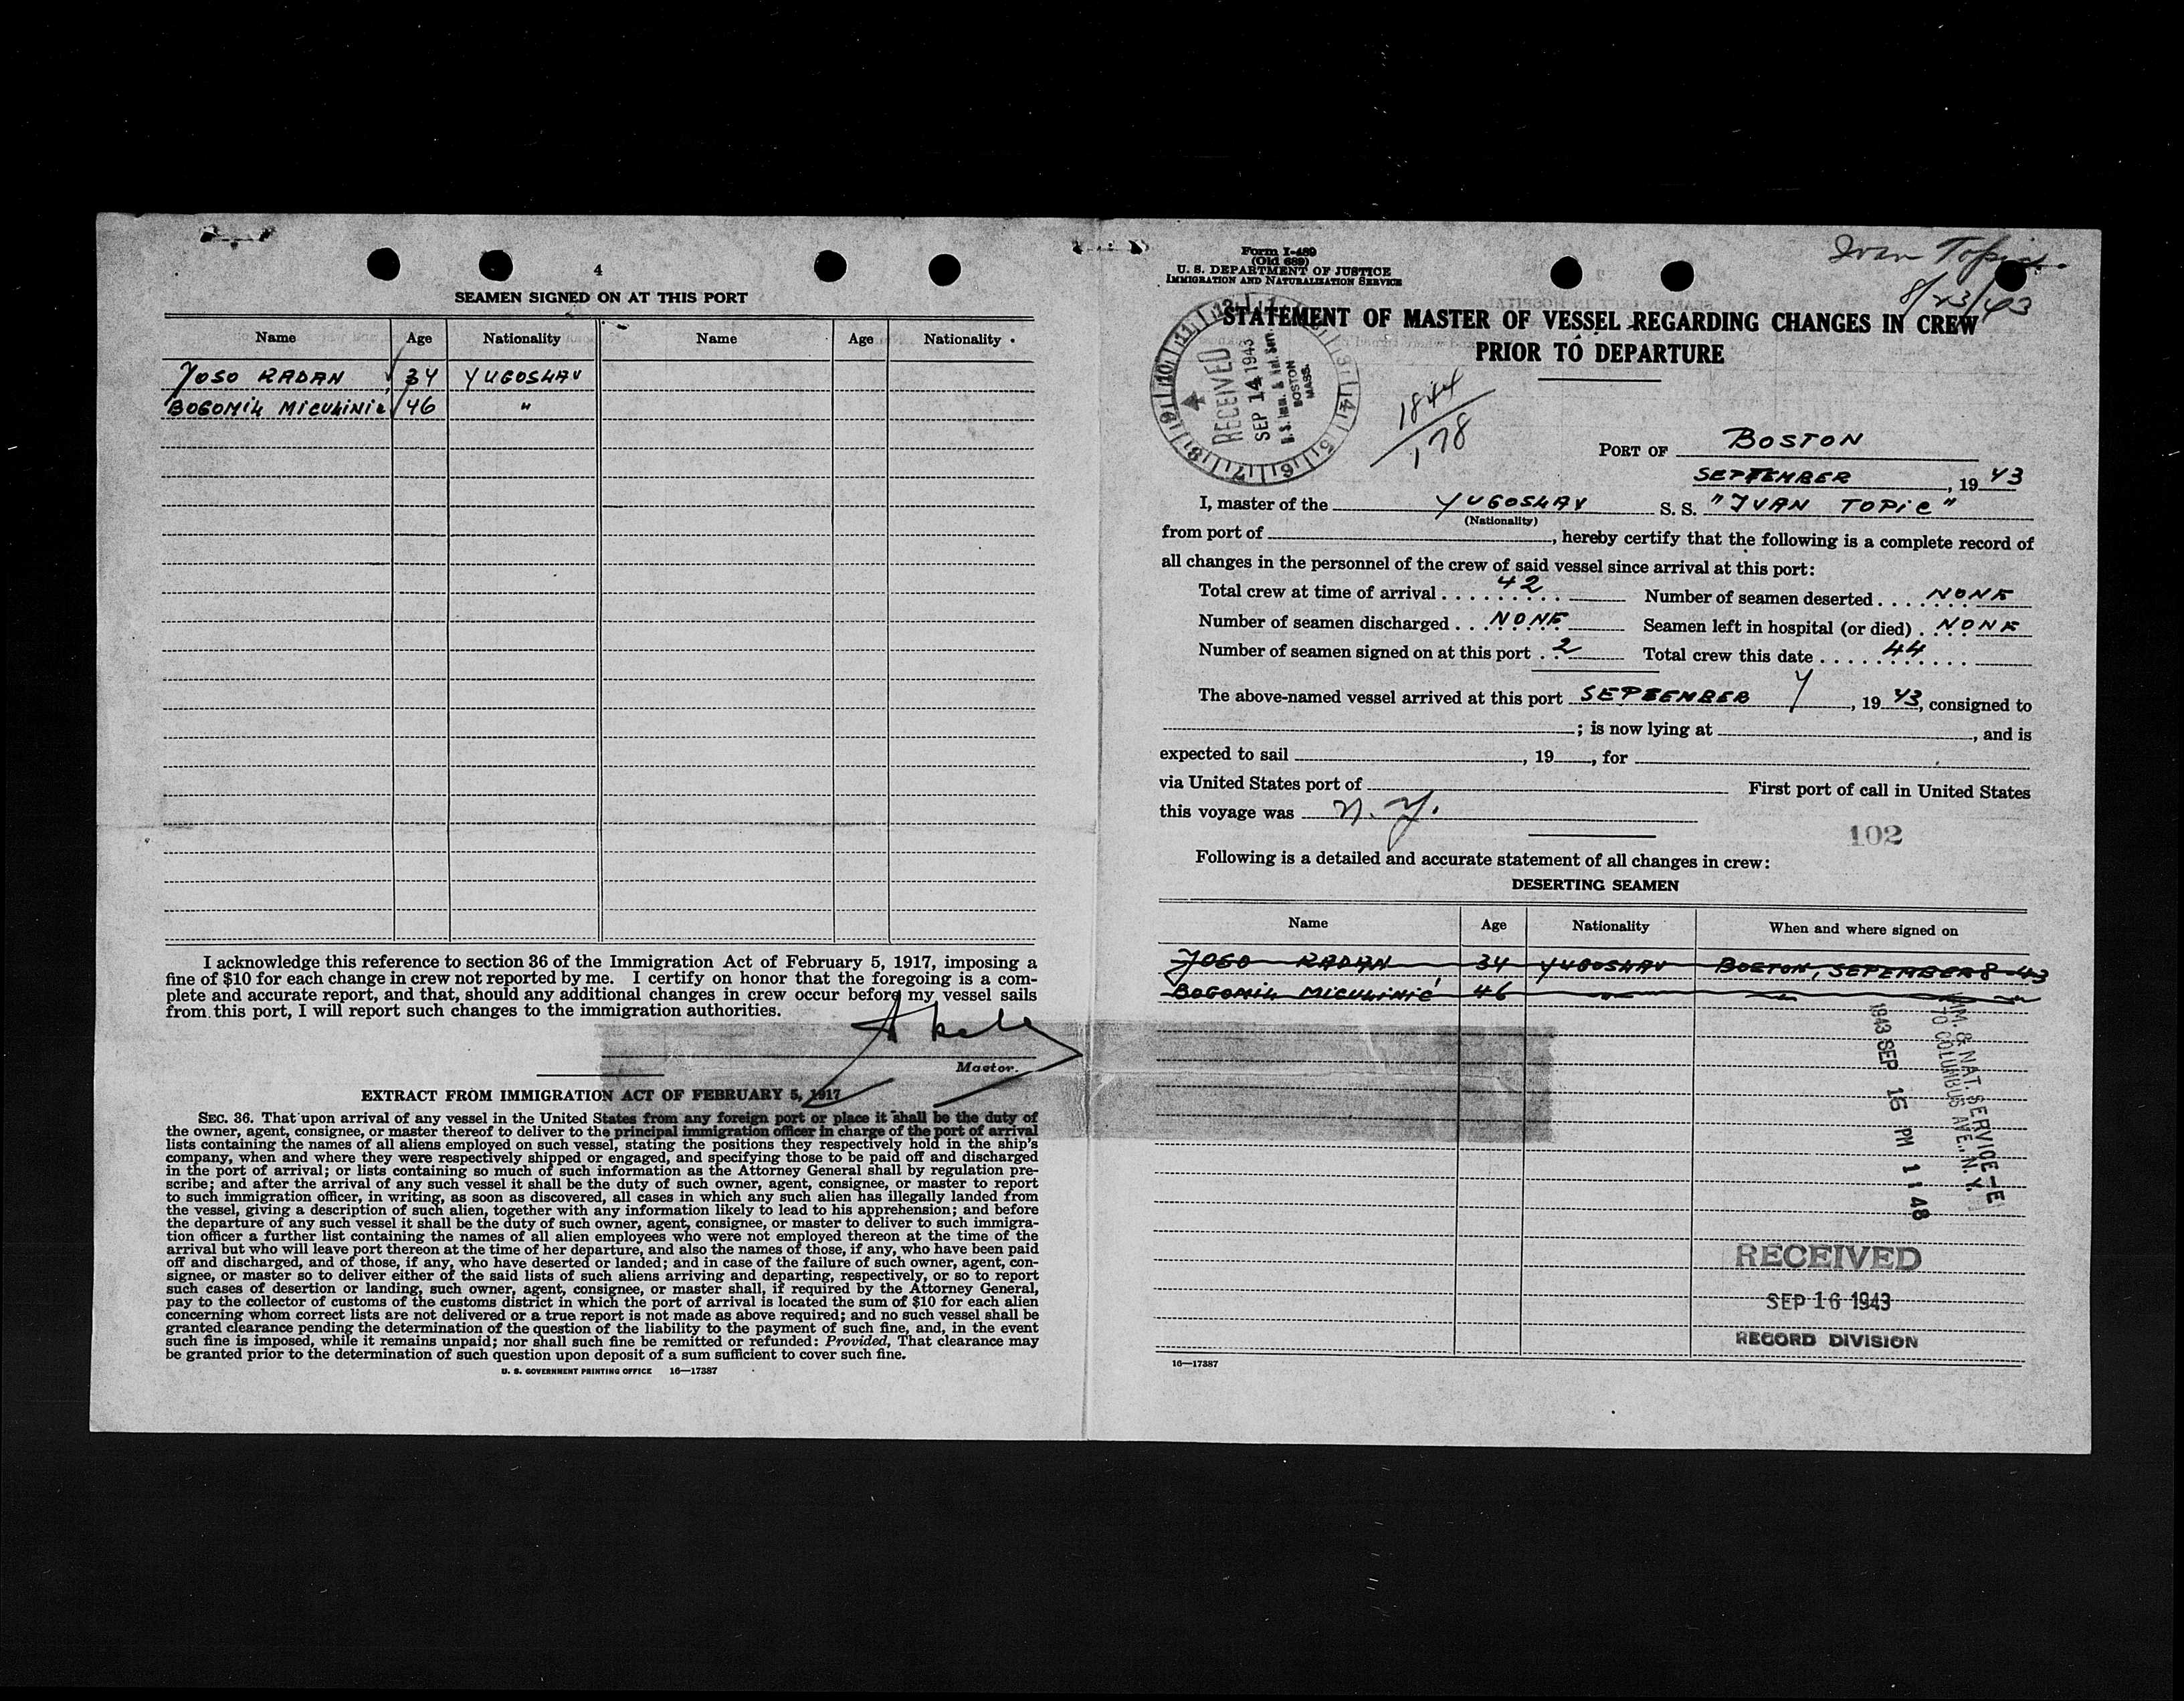 4
SEAMEN SIGNED ON AT THIS PORT
Name Age Nationality Name Age Nationality
JOSO RADAN 34 YUGOSLAV
BOGOMIL MICULINIC 46 "
I acknowledge this reference to section 36 of the Immigration Act of February 5, 1917, imposing a
fine of $10 for each change in crew not reported by me. I certify on honor that the foregoing is a com-
plete and accurate report, and that, should any additional changes in crew occur before my vessel sails
from this port, I will report such changes to the immigration authorities.
Master.
EXTRACT FROM IMMIGRATION ACT OF FEBRUARY 5, 1917
SEC. 36. That upon arrival of any vessel in the United States from any foreign port or place it shall be the duty of
the owner, agent, consignee, or master thereof to deliver to the principal immigration officer in charge of the port of arrival
lists containing the names of all aliens employed on such vessel, stating the positions they respectively hold in the ship's
company, when and where they were respectively shipped or engaged, and specifying those to be paid off and discharged
in the port of arrival; or lists containing so much of such information as the Attorney General shall by regulation pre-
scribe; and after the arrival of any such vessel it shall be the duty of such owner, agent, consignee, or master to report
to such immigration officer, in writing, as soon as discovered, all cases in which any such alien has illegally landed from
the vessel, giving a description of such alien, together with any information likely to lead to his apprehension; and before
the departure of any such vessel it shall be the duty of such owner, agent, consignee, or master to deliver to such immigra-
tion officer a further list containing the names of all alien employees who were not employed thereon at the time of the
arrival but who will leave port thereon at the time of her departure, and also the names of those, if any, who have been paid
off and discharged, and of those, if any, who have deserted or landed; and in case of the failure of such owner, agent, con-
signee, or master so to deliver either of the said lists of such aliens arriving and departing, respectively, or so to report
such cases of desertion or landing, such owner, agent, consignee, or master shall, if required by the Attorney General,
pay to the collector of customs of the customs district in which the port of arrival is located the sum of $10 for each alien
concerning whom correct lists are not delivered or a true report is not made as above required; and no such vessel shall be
granted clearance pending the determination of the question of the liability to the payment of such fine, and, in the event
such fine is imposed, while it remains unpaid; nor shall such fine be remitted or refunded: Provided, That clearance may
be granted prior to the determination of such question upon deposit of a sum sufficient to cover such fine.
U. S. GOVERNMENT PRINTING OFFICE 16—17387
Form I-489
(Old 689)
U. S. DEPARTMENT OF JUSTICE
IMMIGRATION AND NATURALIZATION SERVICE
Ivan Topic
8/23/43
STATEMENT OF MASTER OF VESSEL REGARDING CHANGES IN CREW
PRIOR TO DEPARTURE
RECEIVED
SEP 14 1943
U.S. Imm. & Nat. Serv.
BOSTON
MASS.
1844
178
PORT OF BOSTON
SEPTEMBER, 1943
I, master of the YUGOSLAV S. S. "IVAN TOPIC"
(Nationality)
from port of , hereby certify that the following is a complete record of
all changes in the personnel of the crew of said vessel since arrival at this port:
Total crew at time of arrival 42 Number of seamen deserted NONE
Number of seamen discharged NONE Seamen left in hospital (or died) NONE
Number of seamen signed on at this port 2 Total crew this date 44
The above-named vessel arrived at this port SEPTEMBER , 1943, consigned to
; is now lying at , and is
expected to sail , 19 , for
via United States port of First port of call in United States
this voyage was N. Y.
102
Following is a detailed and accurate statement of all changes in crew:
DESERTING SEAMEN
Name Age Nationality When and where signed on
JOSO RADAN 34 YUGOSLAV BOSTON, SEPEMBER 8-43
BOGOMIL MICULINIC 46
IMM. & NAT. SERVICE
70 COLUMBUS AVE., N. Y.
1943 SEP 16 PM 1 48
RECEIVED
SEP 16 1943
RECORD DIVISION
16—17387